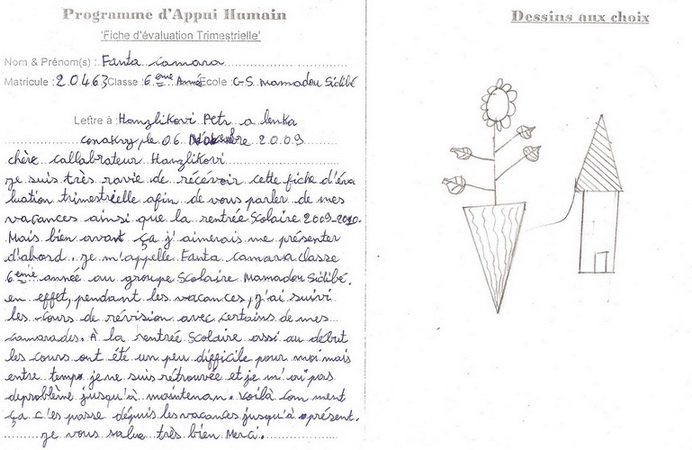 Programme d'Appui Humain
'Fiche d'évaluation Trimestrielle'
Nom & Prénom(s) : Fanta camara
Matricule : 20463 Classe : 6ème Année Ecole : G.S. Mamadou Sidibé
Lettre à : Hanzlikovi Petr a lenka
conakry, le 06 2009
chère callabrateur Hanzlikovi
je suis très ravie de récévoir cette fiche d'éva
luation trimestrielle afin de vous parler de mes
vacances ainsi que la rentrée Scolaire 2009-2010.
Mais bien avant ça j'aimerais me présenter
d'abord. je m'appelle Fanta camara classe
6ème année au groupe Scolaire Mamadou Sidibé.
en effet, pendant les vacances, j'ai suivi
les cours de révision avec certains de mes
camarades. À la rentrée Scolaire assi au début
les cours ont été un peu difficile pour moi mais
entre temps je ne suis rétrouvée et je m'ai pas
deproblème jusqu'à maintenan. Voilà com ment
ça c'es passe dépuis les vacances jusqu'à présent.
je vous salue très bien Merci.
Dessins aux choix